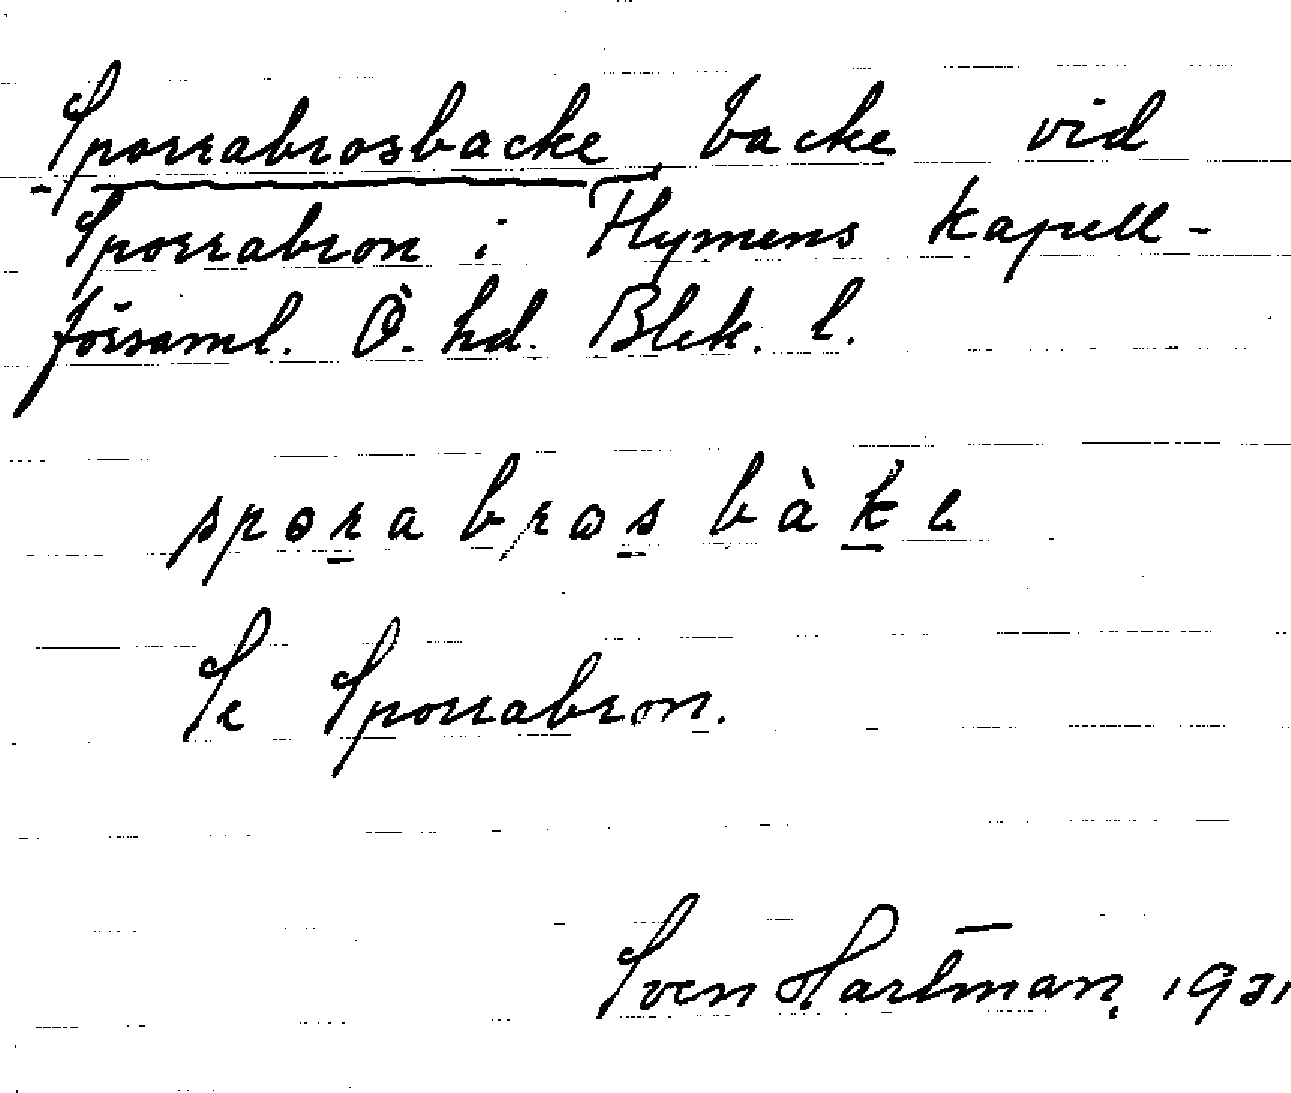 Sporrabrosbacke, backe vid
Sporrabron i Flymens kapell-
församl. Ö. hd. Blek. l.
spora bros bàke
Se Sporrabron.
Sven Hartman, 1931